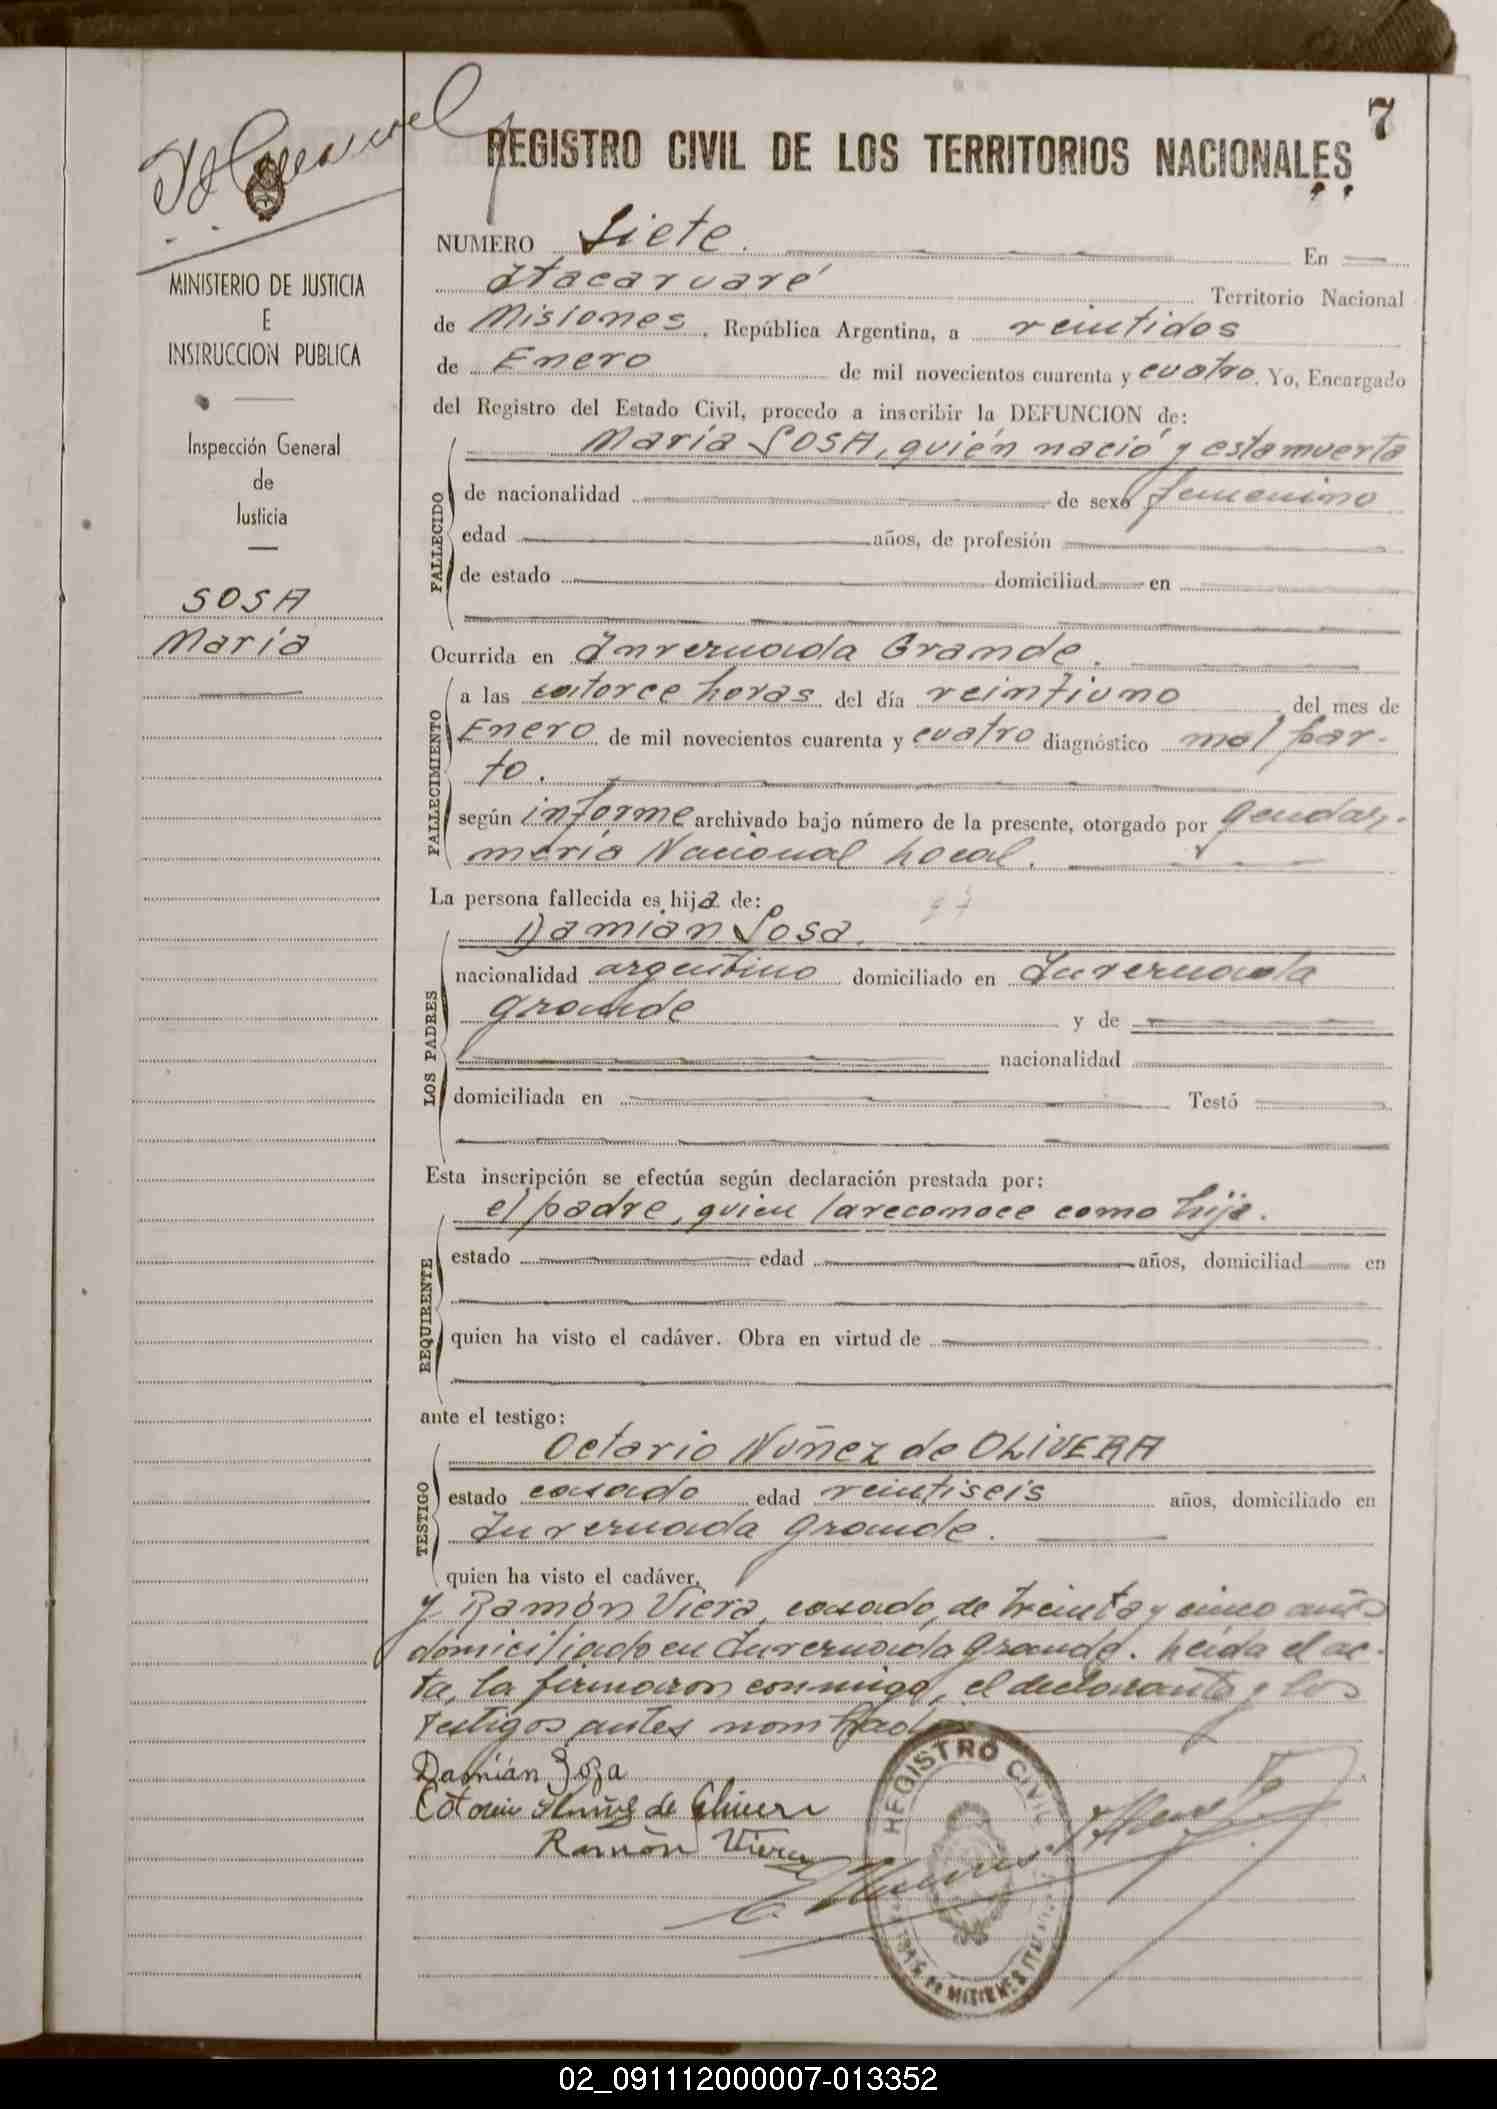 7
REGISTRO CIVIL DE LOS TERRITORIOS NACIONALES
MINISTERIO DE JUSTICIA
E
INSTRUCCION PUBLICA
Inspección General
de
Justicia
SOSA
María
NUMERO Siete. En
Itacaruaré Territorio Nacional
de Misiones, República Argentina, a veintidos
de Enero de mil novecientos cuarenta y cuatro. Yo, Encargado
del Registro del Estado Civil, procedo a inscribir la DEFUNCION de:
María SOSA, quién nació y esta muerta
FALLECIDO
de nacionalidad de sexo femenino
edad años, de profesión
de estado domiciliad en
Ocurrida en Invernada Grande.
FALLECIMIENTO
a las catorce horas del día veintiuno del mes de
Enero de mil novecientos cuarenta y cuatro diagnóstico mal par-
to.
según informe archivado bajo número de la presente, otorgado por Gendar-
mería Nacional Local.
La persona fallecida es hija de:
Damián Sosa.
LOS PADRES
nacionalidad argentino domiciliado en Invernada
Grande y de
nacionalidad
domiciliada en Testó
Esta inscripción se efectúa según declaración prestada por:
el padre, quien la reconoce como hija.
REQUIRENTE
estado edad años, domiciliad en
quien ha visto el cadáver. Obra en virtud de
ante el testigo:
Octavio Núñez de OLIVERA
TESTIGO
estado casado edad veintiseis años, domiciliado en
Invernada Grande.
quien ha visto el cadáver,
y Ramón Viera, casado, de treinta y cinco años
domiciliado en Invernada Grande. Leida el ac-
ta, la firmaron conmigo, el declarante y los
testigos antes nombrados
Damián Soza
de Olivera
Ramón Viera
REGISTRO CIVIL
MISIONES
02_091112000007-013352